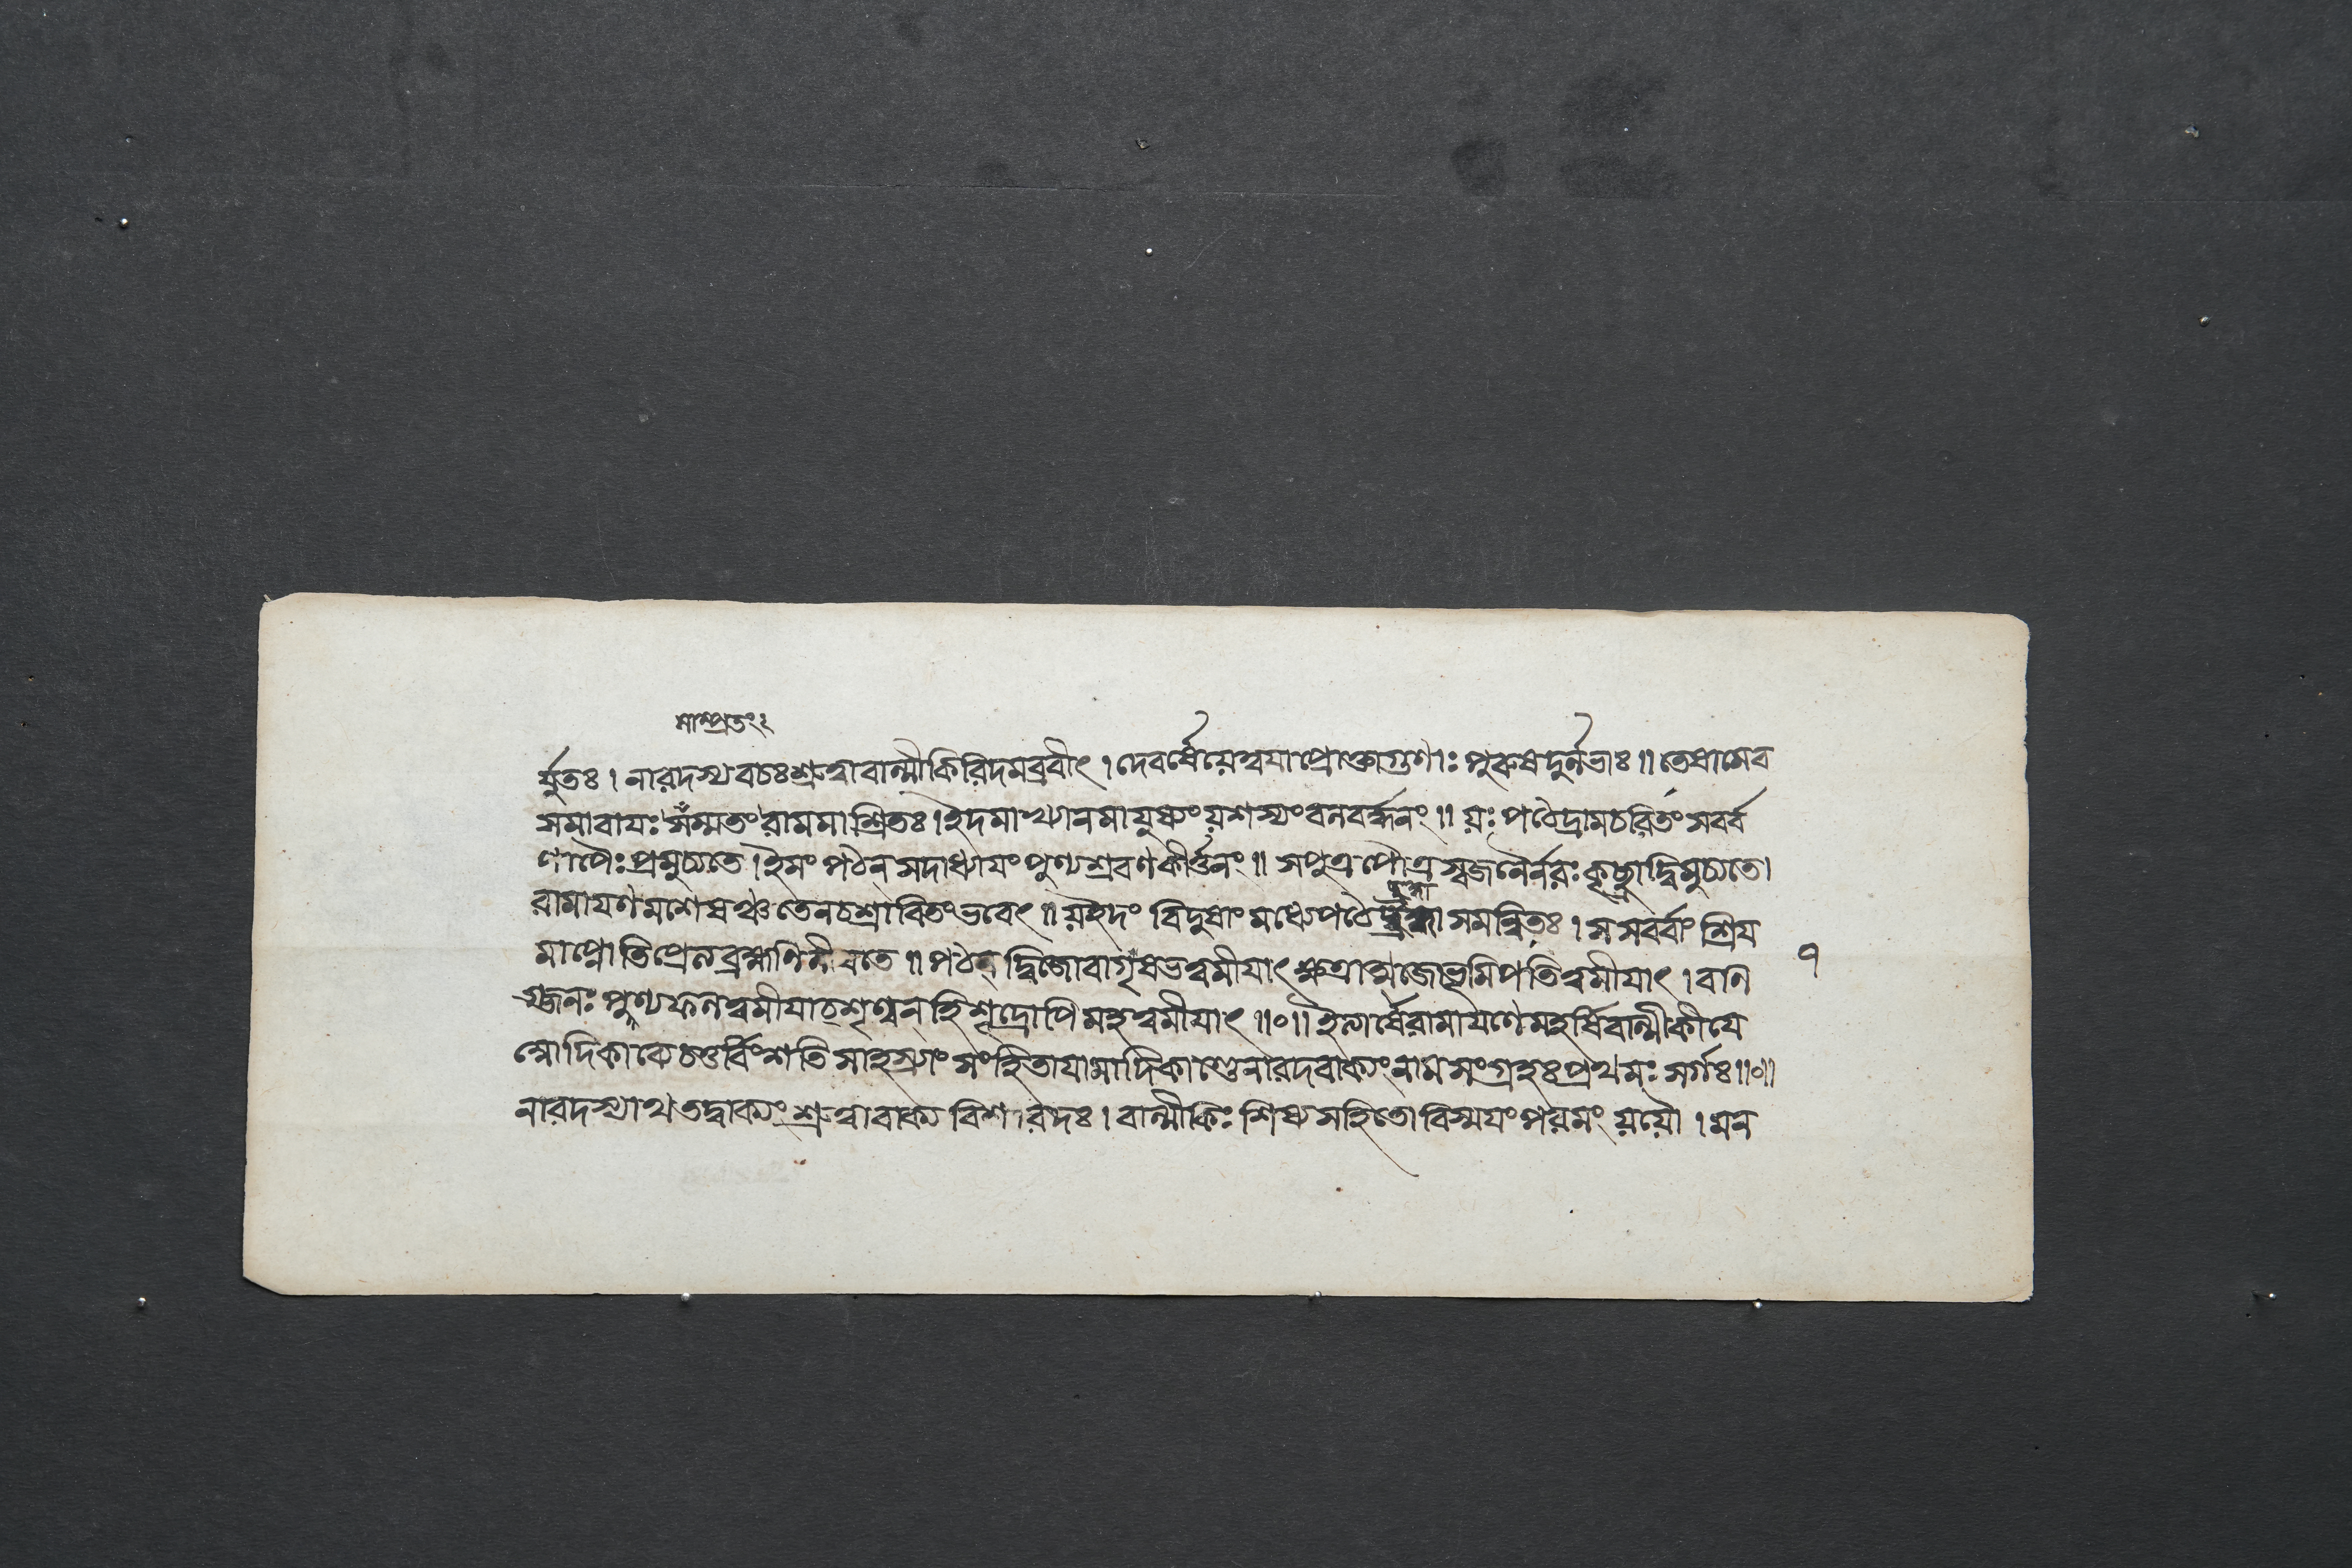 সাম্প্রতং২
র্যুতঃ। নারদস্য বচঃ শ্রুত্বা বাল্মীকিরিদমব্রবীৎ। দেবর্ষে যে ত্বয়া প্রোক্তা গুণাঃ পুরুষদুর্লভাঃ॥ তেষামেব
সমাবায়ঃ সম্মতং রামমাশ্রিতঃ। ইদমাখ্যানমায়ুষ্যং যশস্যং বলবর্দ্ধনং॥ যঃ পঠেদ্রামচরিতং সর্ব্ব
পাপৈঃ প্রমুচ্যতে। ইমং পঠন্ সদাধ্যায়ং পুণ্যশ্রবণকীর্ত্তনং॥ সপুত্রপৌত্রস্বজনৈর্নরঃ কৃচ্ছ্রাদ্বিমুচ্যতে।
রামায়ণমশেষঞ্চ তেন চ শ্রাবিতং ভবেৎ॥ য ইদং বিদুষাং মধ্যে পঠে সমন্বিতঃ। স সর্ব্বাং শ্রিয়
মাপ্নোতি প্রেত্য ব্রহ্মণি লীয়তে॥ পঠন্ দ্বিজো বাগৃষভত্বমীয়াৎ ক্ষত্রাত্মজো ভূমিপতিত্বমীয়াৎ। বণি ৭
গ্জনঃ পুণ্যফলত্বমীয়াচ্ শৃণ্বন্ হি শূদ্রোপি মহত্বমীয়াৎ॥০॥ ইত্যার্ষে রামায়ণে মহর্ষিবাল্মীকীয়ে
চতুর্বিংশতিসাহস্র্যাং সংহিতায়ামাদিকাণ্ডে নারদবাক্যং নাম সংগ্রহঃ প্রথমঃ সর্গঃ॥০॥
নারদস্যাথ তদ্বাক্যং শ্রুত্বা বাক্যবিশারদঃ। বাল্মীকিঃ শিষ্যসহিতো বিস্ময়ং পরমং যযৌ। মন